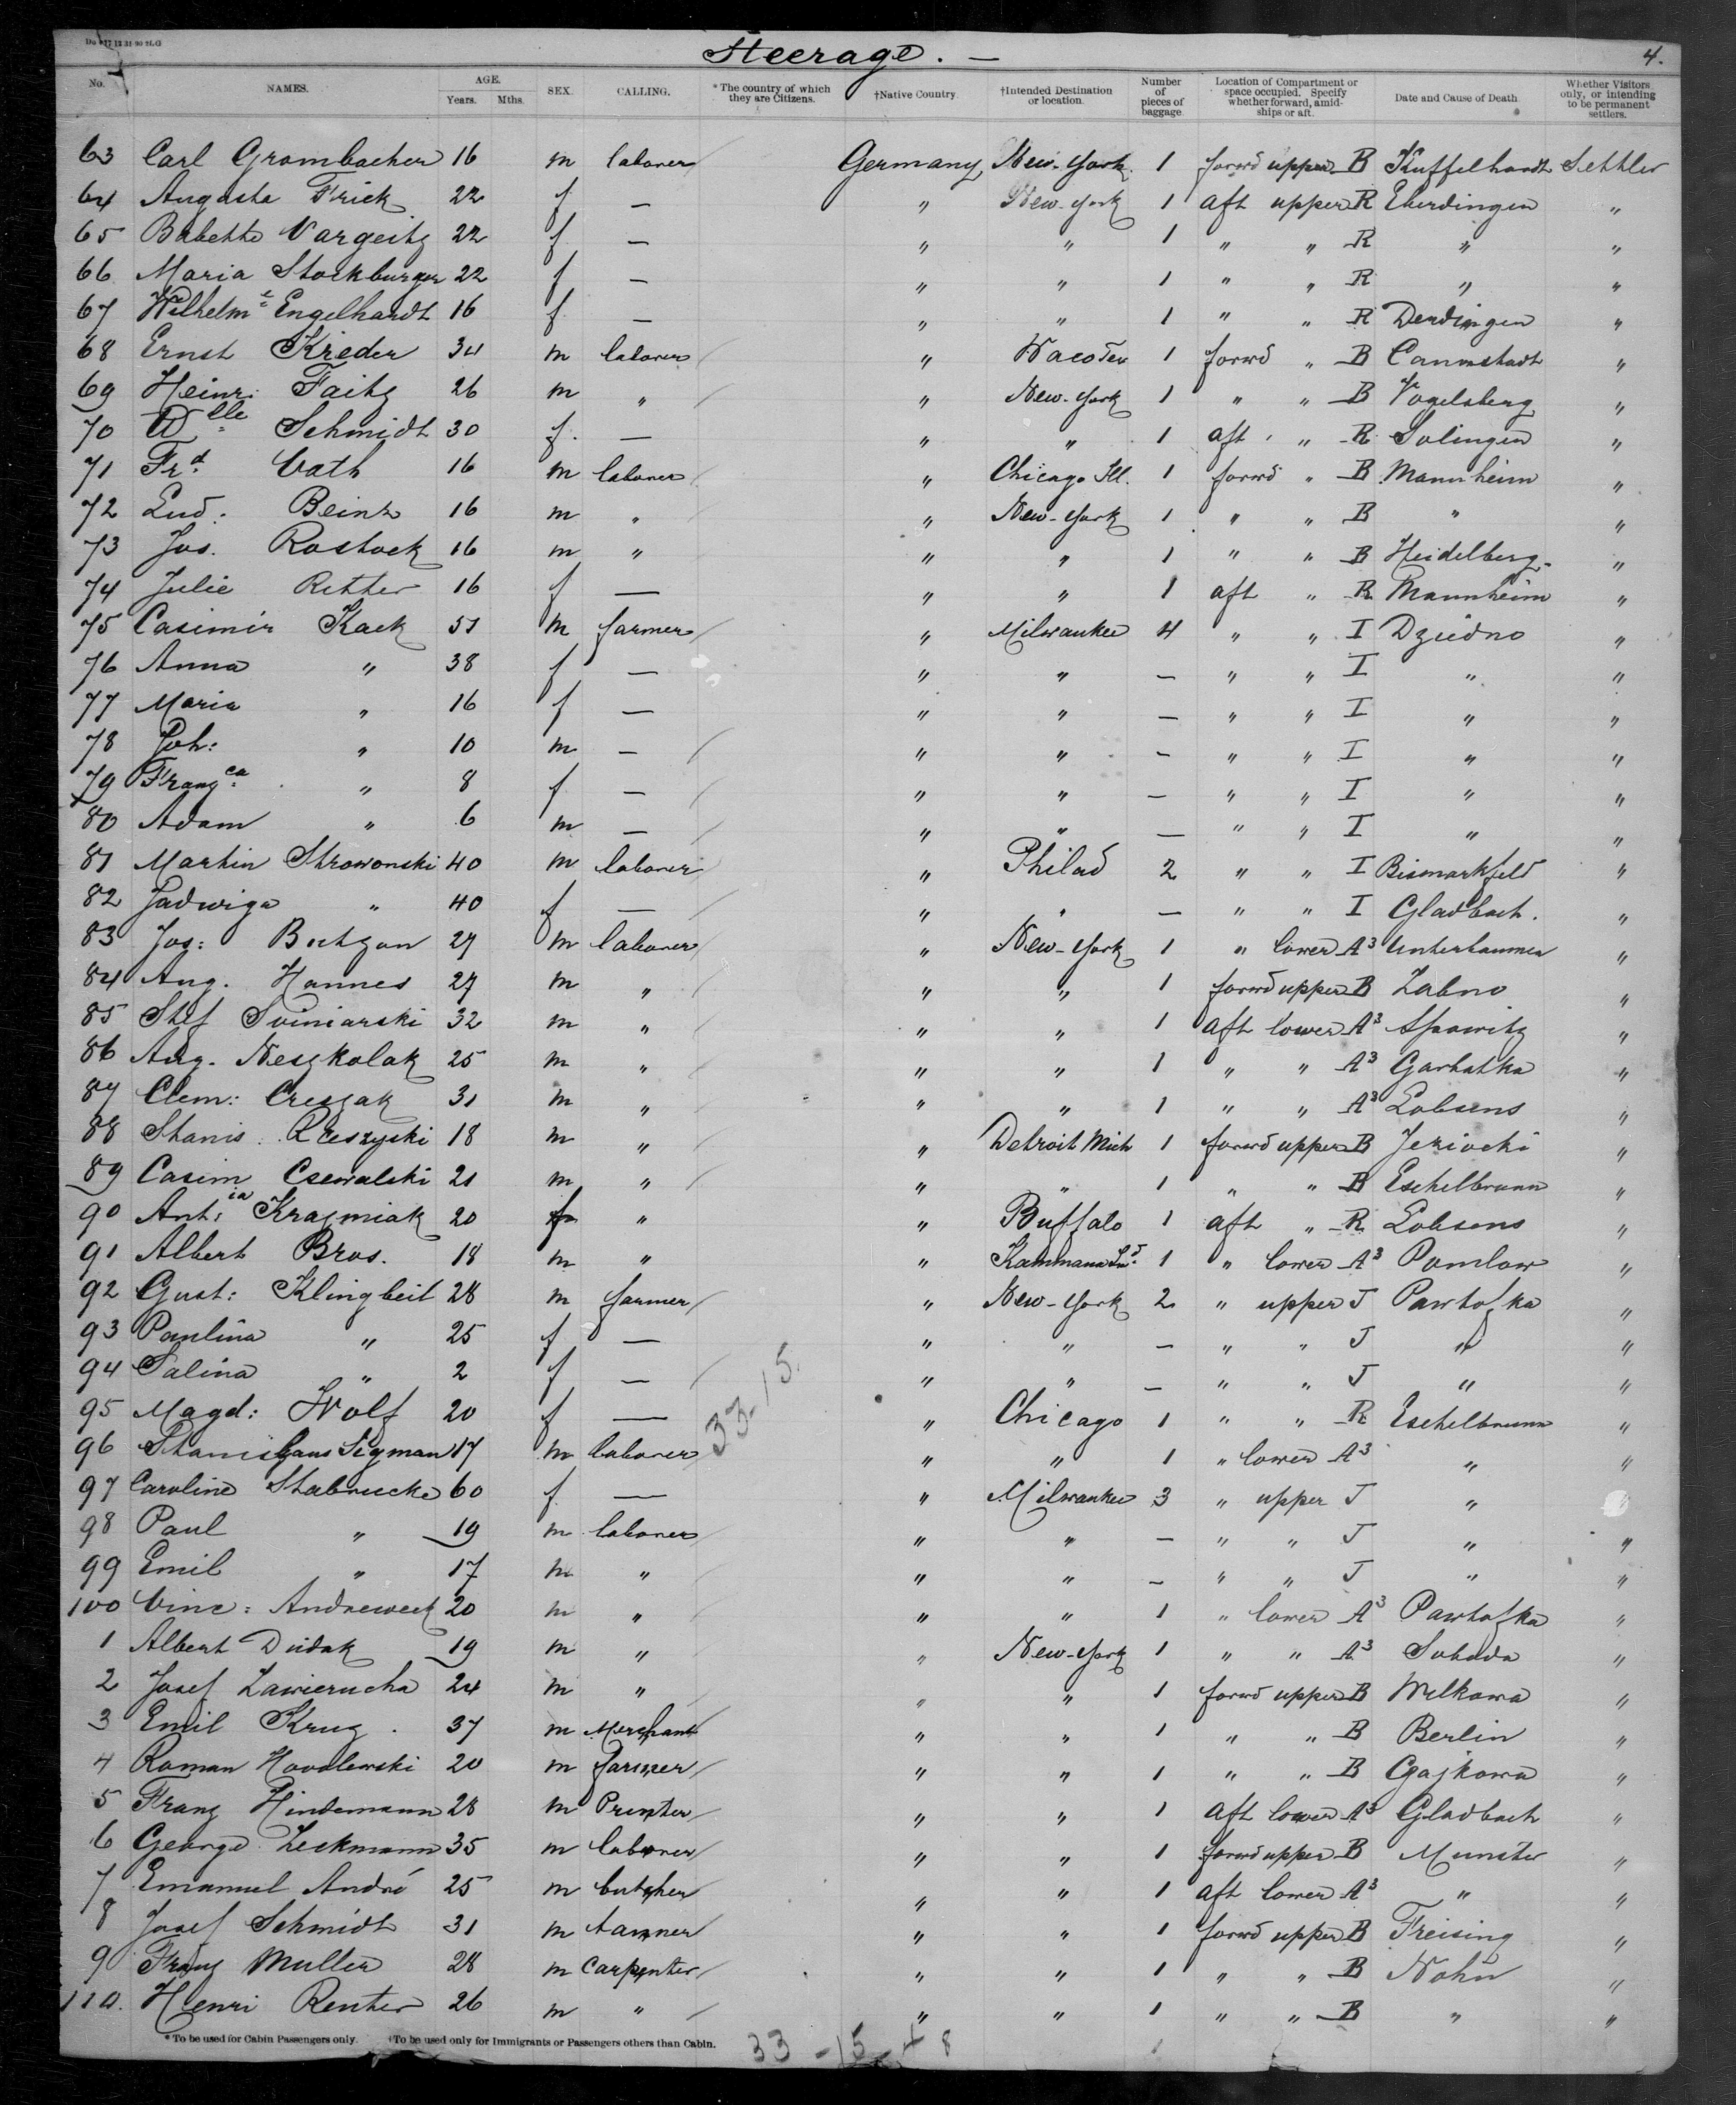 Steerage. — 4.
No. NAMES. AGE. Years. Mths. SEX. CALLING. *The country of which they are Citizens. †Native Country. †Intended Destination or location. Number of pieces of baggage. Location of Compartment or space occupied. Specify whether forward, amidships or aft. Date and Cause of Death. Whether Visitors only, or intending to be permanent settlers.
63 Carl Grombacher 16 m laborer Germany New-York 1 forwd upper B Settler
64 Augusta Frick 22 f — " New-York 1 aft upper R Eberdingen "
65 Babette Vargeitz 22 f — " " 1 " " R " "
66 Maria Stockburger 22 f — " " 1 " " R " "
67 Wilhelm e Engelhardt 16 f — " " 1 " " R Derdingen "
68 Ernst Krieder 34 m laborer " Waco Tex 1 forwd " B Cannstadt "
69 Heinr: Faitz 26 m " " New-York 1 " " B Vogelsberg "
70 lle Schmidt 30 f. — " " 1 aft " R Solingen "
71 Frd. Vath 16 m laborer " Chicago Ill. 1 forwd " B Mannheim "
72 Lud. Beinz 16 m " " New-York 1 " " B " "
73 Jos. Rostock 16 m " " " 1 " " B Heidelberg "
74 Julie Ritter 16 f — " " 1 aft " R Mannheim "
75 Casimir Kack 51 m farmer " Milwaukee 4 " " I Dziedno "
76 Anna " 38 f — " " — " " I " "
77 Maria " 16 f — " " — " " I " "
78 Joh: " 10 m — " " — " " I " "
79 Franz ca " 8 f — " " — " " I " "
80 Adam " 6 m — " " — " " I " "
81 Martin Strowonski 40 m laborer " Philad 2 " " I Bismarkfeld "
82 Jadwiga " 40 f — " " — " " I Gladbach. "
83 Jos: 27 m laborer " New-York 1 " lower A3 "
84 Aug. Hannes 27 m " " " 1 forwd upper B Zabno "
85 Stef Sviniarski 32 m " " " 1 aft lower A3 "
86 Aug. Neszkolak 25 m " " " 1 " " A3 Garbatka "
87 Clem: Creszak 31 m " " " 1 " " A3 Lobsens "
88 Stanis. 18 m " " Detroit Mich 1 forwd upper B Jeziocki "
89 Casim Csewalski 21 m " " " 1 " " B Eschelbrunn "
90 Ant: ia Krazmiak 20 f " " Buffalo 1 aft " R Lobsens "
91 Albert Bros. 18 m " " 1 " lower A3 Pomlow "
92 Gust: Klingbeil 28 m farmer " New-York 2 " upper J Pawtofka "
93 Paulina " 25 f — " " — " " J " "
94 Salina " 2 f — " " — " " J " "
95 Magd: Wolf 20 f — " Chicago 1 " " R Eschelbrunn "
33-15.
96 Stanislaus Sigman 17 m laborer " " 1 " lower A3 " "
97 Caroline Stabrucke 60 f — " Milwaukee 3 " upper J "
98 Paul " 19 m laborer " " — " " J " "
99 Emil " 17 m " " " — " " J " "
100 Vinc: Andreweck 20 m " " " 1 " lower A3 Pawtofka "
1 Albert Dudak 19 m " " New-York 1 " " A3 Sobada "
2 Josef Zawierucha 24 m " " " 1 forwd upper B Wilkowa "
3 Emil Krug. 37 m Merchant " " 1 " " B Berlin "
4 Roman Hovdlewski 20 m farmer " " 1 " " B Gajkowa "
5 Franz Hindemann 28 m Printer " " 1 aft lower A3 Gladbach "
6 George Zeckmann 35 m laborer " " 1 forwd upper B Munster "
7 Emanuel André 25 m butcher " " 1 aft lower A3 " "
8 Josef Schmidt 31 m tanner " " 1 forwd upper B Freising "
9 Franz Muller 28 m Carpenter " " 1 " " B Nohn "
110. Henri Renter 26 m " " " 1 " " B " "
*To be used for Cabin Passengers only. †To be used only for Immigrants or Passengers others than Cabin.
33 - 15 + 8